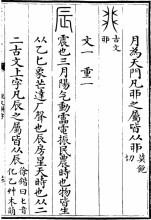 月為天門凡卯之屬皆从卯莫飽切
古文卯
文一 重一
震也三月陽气動靁電振民農時也物皆生
从乙匕象芒達厂聲也辰房星天時也从二
二古文上字凡辰之屬皆从辰徐鍇曰匕音化乙艸木萌